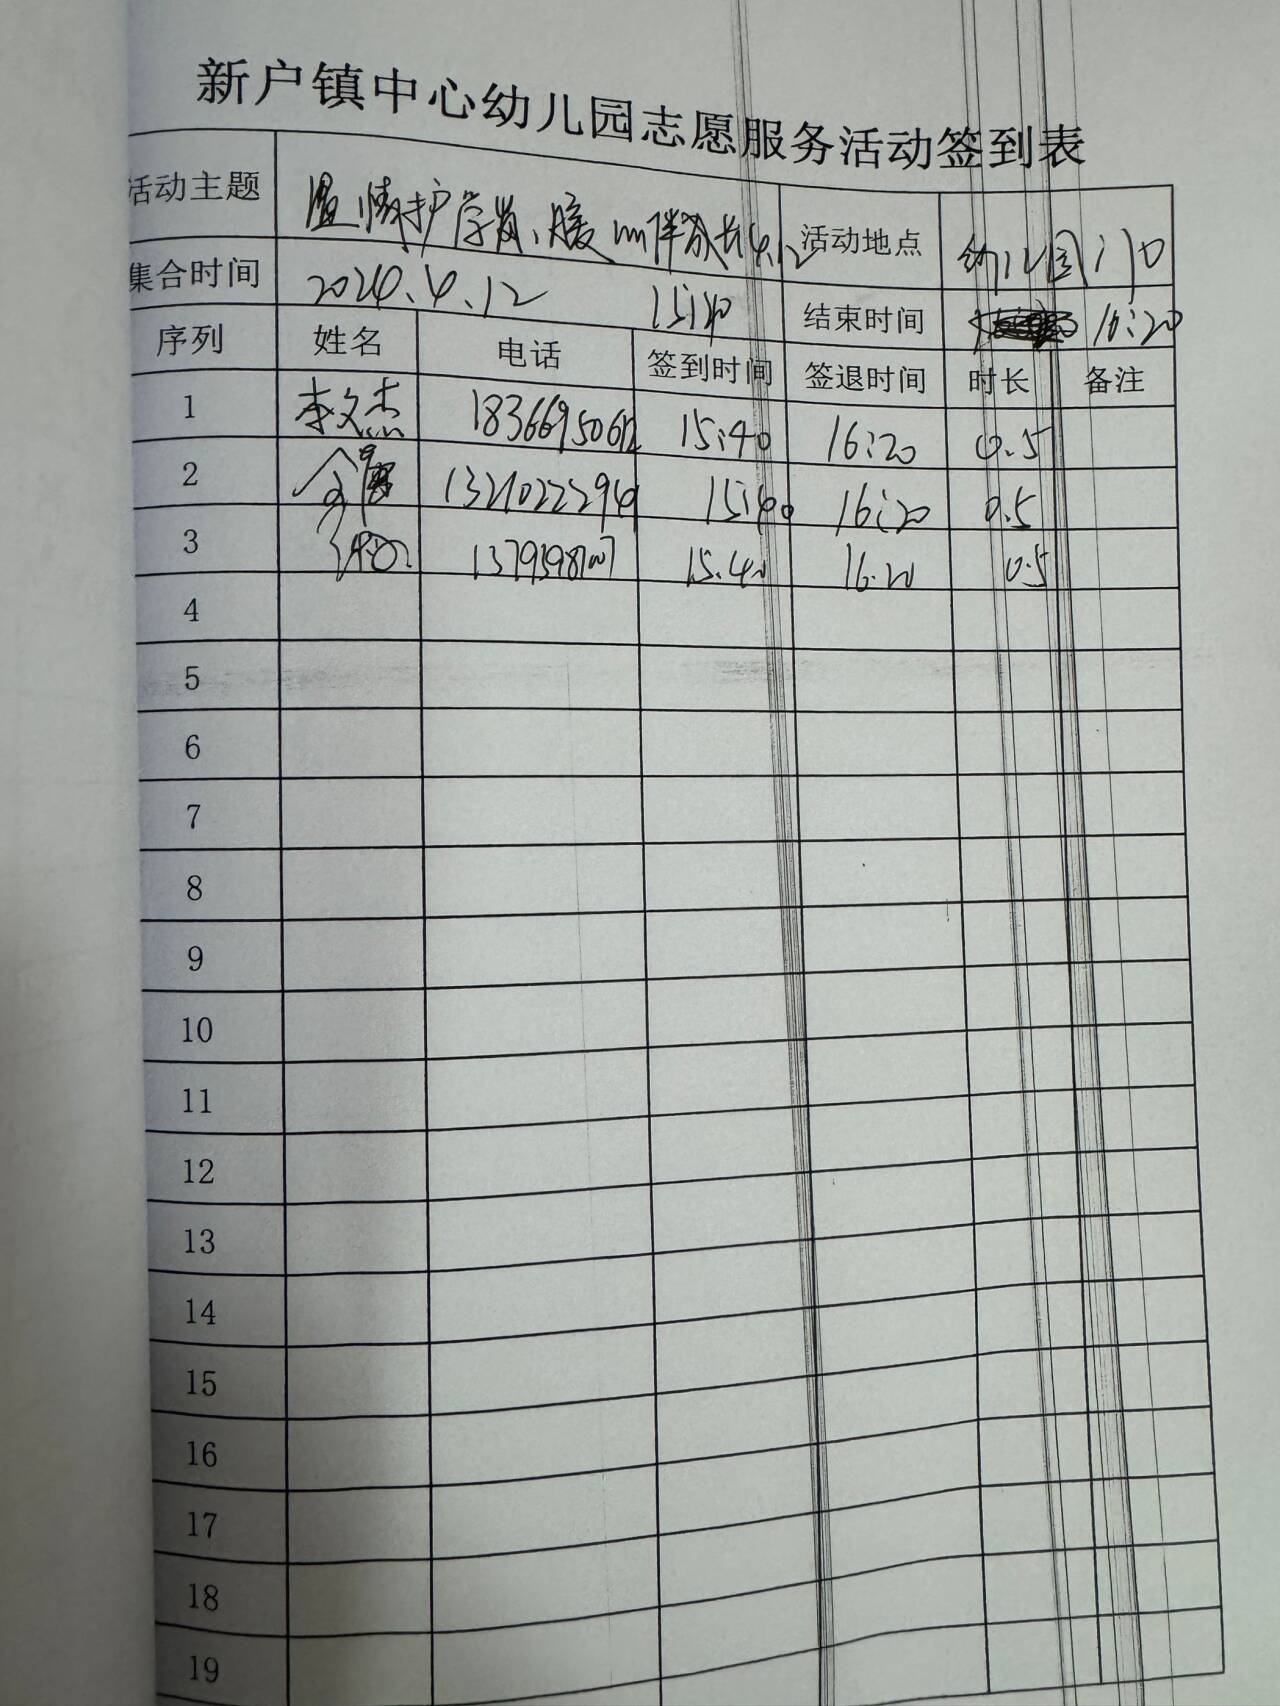 新户镇中心幼儿园志愿服务活动签到表
活动主题 温情护学岗、暖心伴成长4.12 活动地点 幼儿园门口
集合时间 2024.4.12 15:40 结束时间 16:20
序列 姓名 电话 签到时间 签退时间 时长 备注
1 李文杰 15:40 16:20 0.5
2 15:40 16:20 0.5
3 15.40 16.20 0.5
4
5
6
7
8
9
10
11
12
13
14
15
16
17
18
19